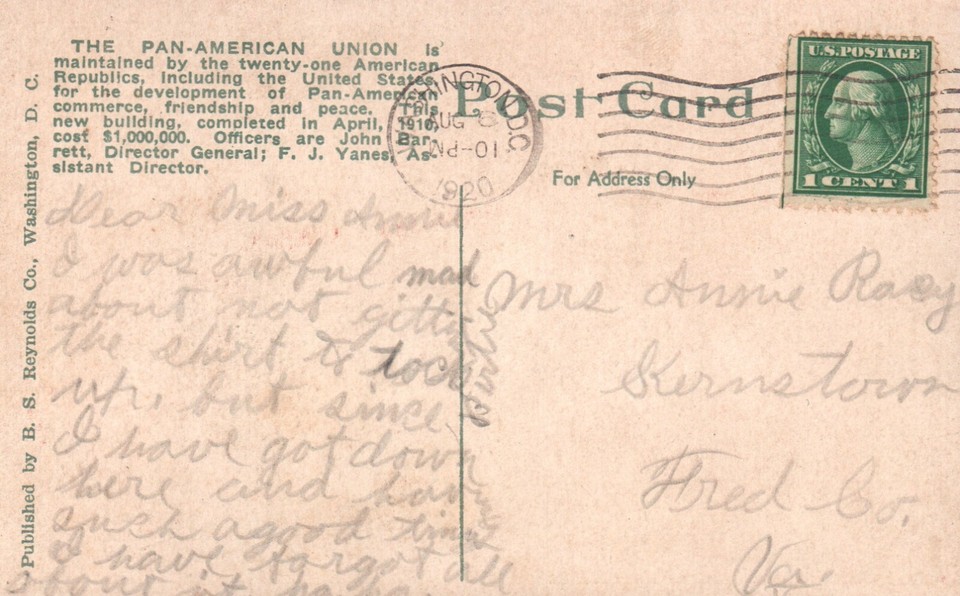 THE PAN-AMERICAN UNION is
maintained by the twenty-one American
Republics, including the United States,
for the development of Pan-American
commerce, friendship and peace. This
new building, completed in April, 1910,
cost $1,000,000. Officers are John Bar-
rett, Director General; F. J. Yanes, As-
sistant Director.
Published by B. S. Reynolds Co., Washington, D. C.
Post Card
For Address Only
WASHINGTON, D.C.
AUG
1920
U.S. POSTAGE
1 CENT 1
Dear Miss Annie
I was awful mad
about not gitting
the shirt I
up, but since
I have got down
here and have
such a good time
I have forgot all
about it haha
Mrs Annie
Kernstown
Fred Co.
Va